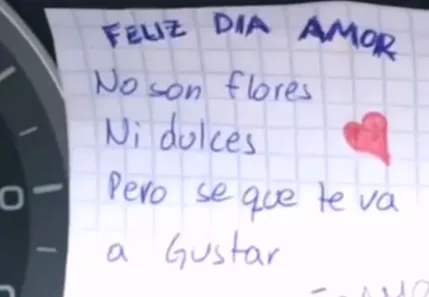 FELIZ DIA AMOR
No son flores
Ni dulces
Pero se que te va
a Gustar